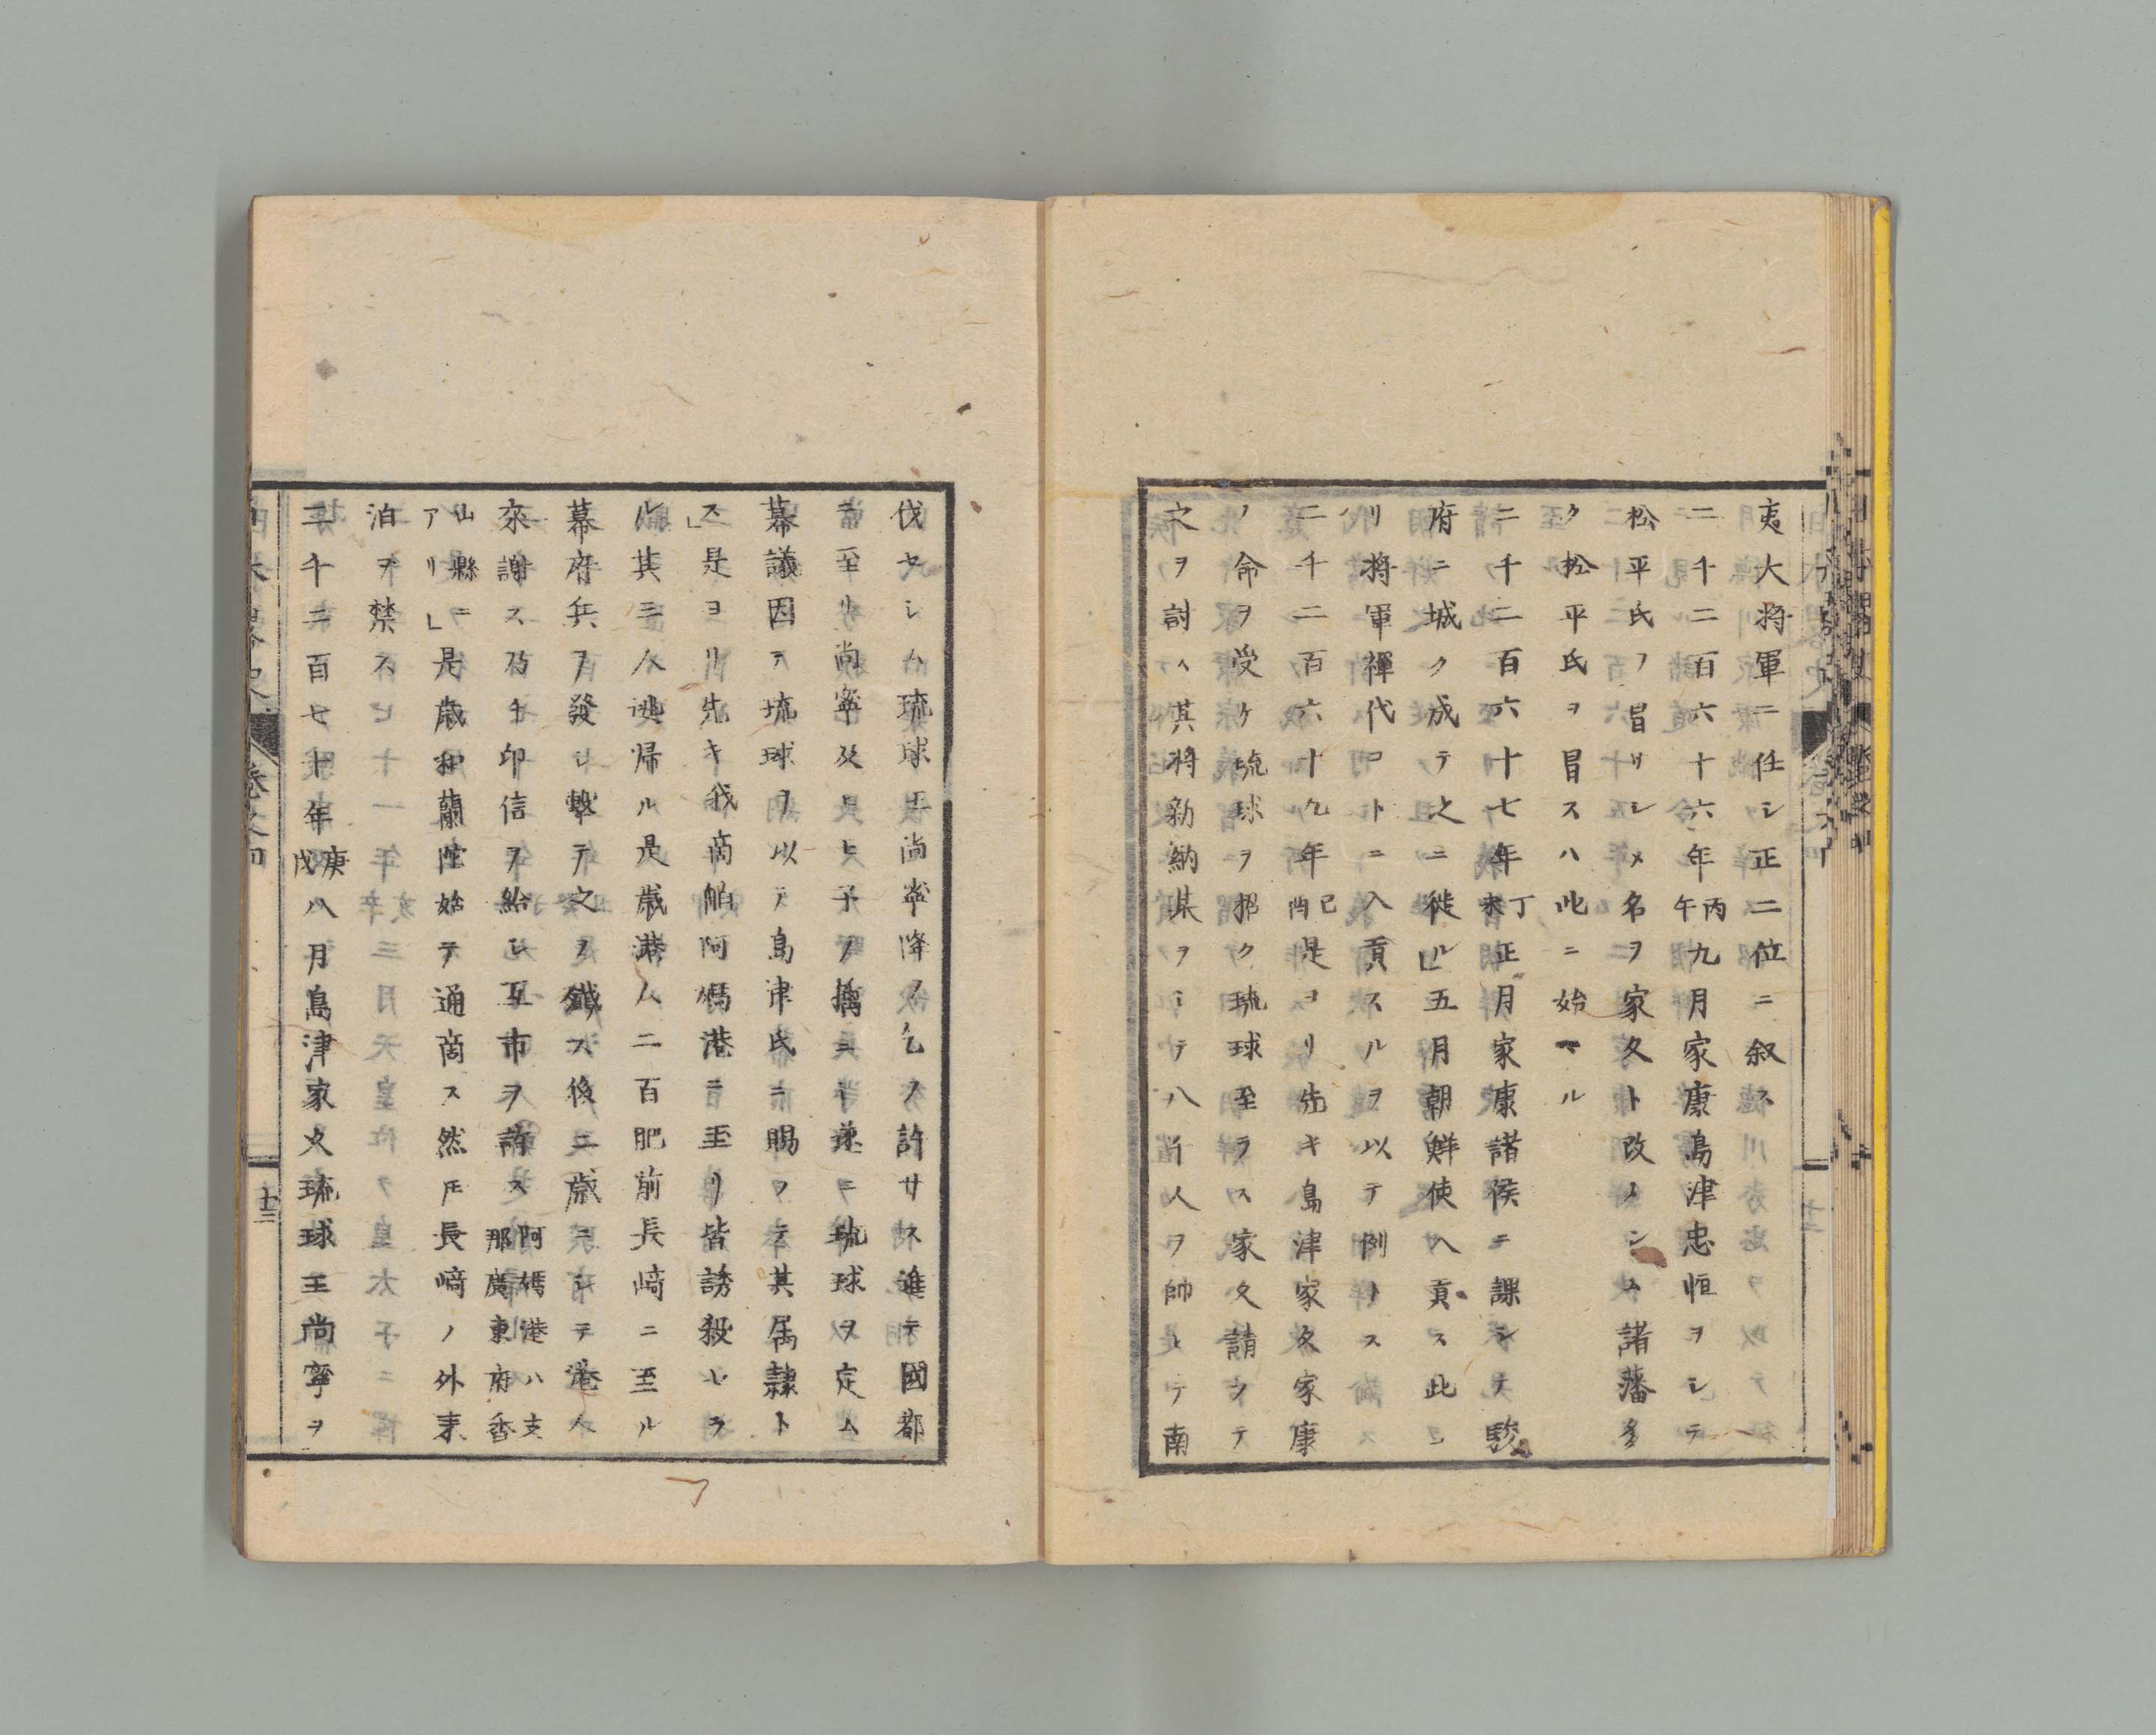 夷大将軍ニ任シ正二位ニ叙ス
二千二百六十六年丙午九月家康島津忠恒ヲシテ
松平氏ヲ冒サシメ名ヲ家久ト改メシム諸藩多
ク松平氏ヲ冒スハ此ニ始マル
二千二百六十七年丁未正月家康諸侯ニ課シテ駿
府ニ城ク成テ之ニ徙ル」五月朝鮮使入貢ス此ヨ
リ将軍禪代コトニ入貢スルヲ以テ例トス
二千二百六十九年己酉是ヨリ先キ島津家久家康
ノ命ヲ受ケ琉球ヲ招ク琉球至ラス家久請フテ
之ヲ討ス其将新納某ヲシテ八千人ヲ帥ヒテ南
伐セシム琉球王尚寧降ヲ乞フ許サス進テ國都
ニ至リ尚寧及ヒ
幕議因テ琉球ヲ以テ島津氏ニ賜フテ其属隷ト
ス」是ヨリ先キ我商舶阿媽港ニ至リ皆誘殺セラ
ル其三人逃帰ル是歳港人二百肥前長﨑ニ至ル
幕府兵ヲ發シ撃テ之ヲ鑯ス後二歳ニシテ港人
來謝ス乃チ印信ヲ給シ互市ヲ許ス阿媽港ハ支那廣東府香
山縣ニアリ」是歳和蘭陀始テ通商ス然𪜈長﨑ノ外来
泊ヲ禁ス
二千二百七十年庚戌八月島津家久琉球王尚寧ヲ
十三